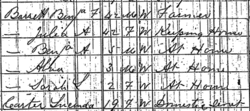 Barrett Benj F 42 M W Farmer
— Julia A 42 F W Keeping House
— Benj A 5 M W At Home
— Alba 3 M W At Home
— Sarah L 2 F W At Home
Carter Lucinda 19 F W Domestic Serv